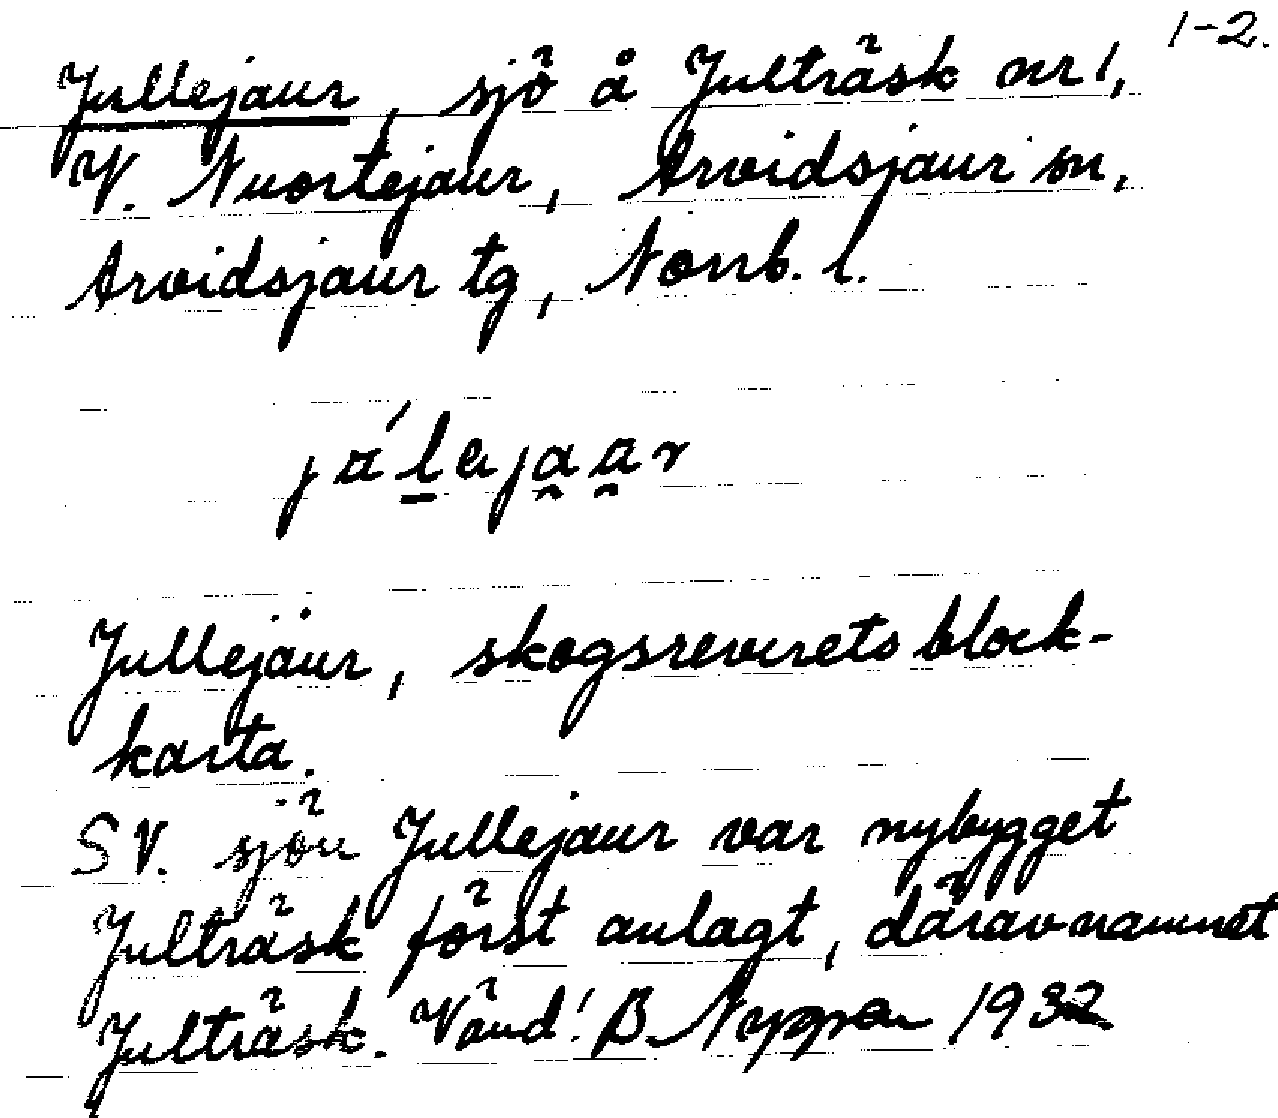 1-2.
Jullejaur, sjö å Julträsk nr 1,
V. Nuortejaur, Arvidsjaur sn,
Arvidsjaur tg, Norrb. l.
Jullejaur, skogsrevirets block-
karta.
SV. sjön Jullejaur var nybygget
Julträsk först anlagt, därav namnet
Julträsk. Vänd! B. 1932